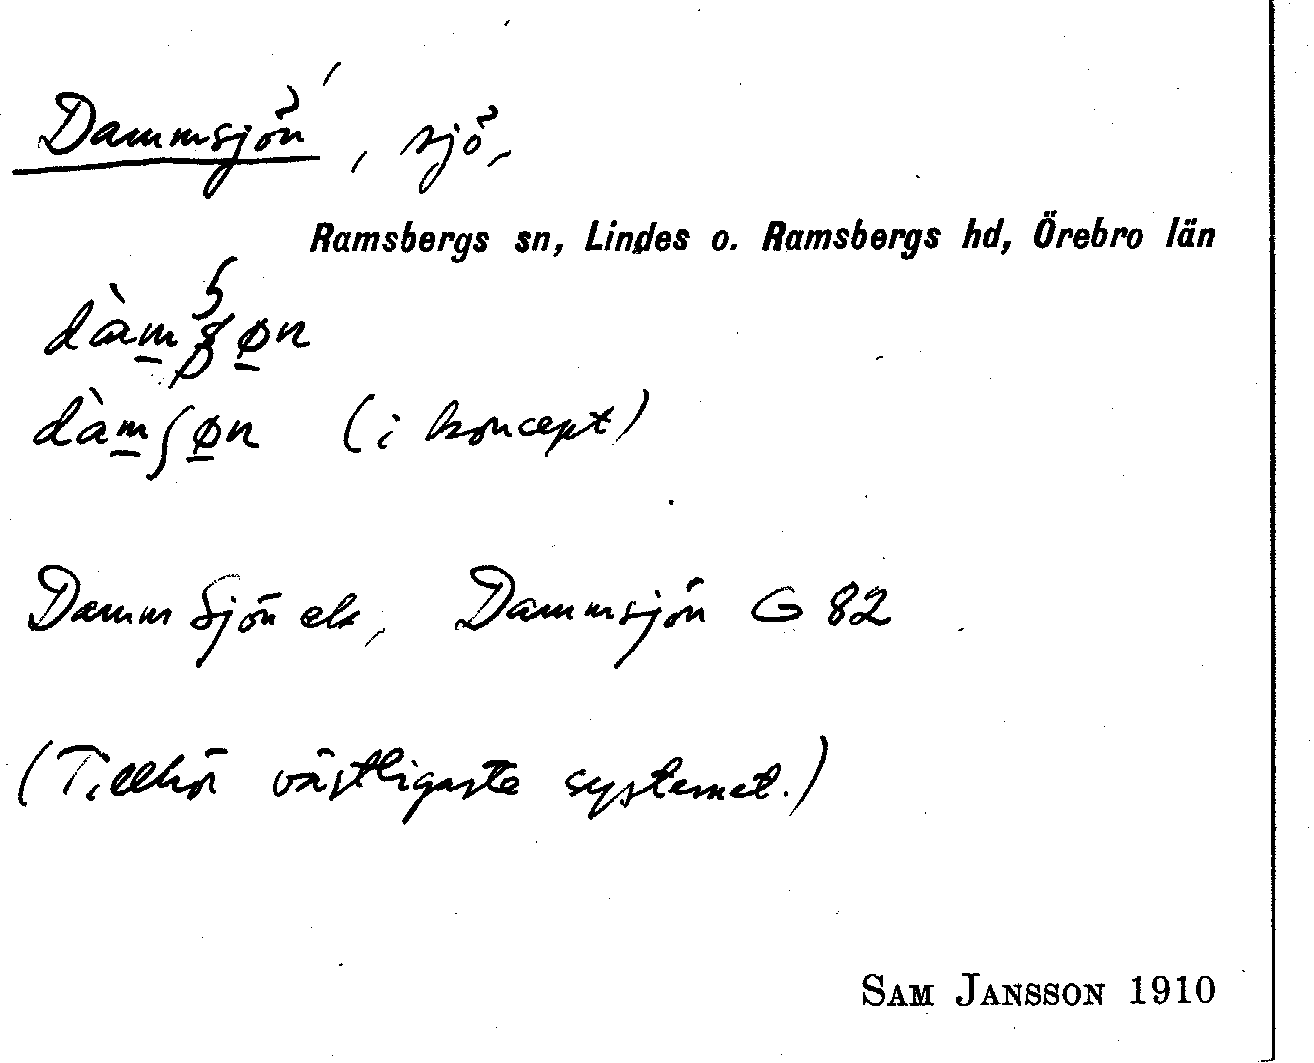 Dammsjön, sjö,
Ramsbergs sn, Lindes o. Ramsbergs hd, Örebro län
dàm̲ʃø̲n (i koncept)
Damm Sjön ek, Dammsjön G 82
(Tillhör västligaste systemet.)
SAM JANSSON 1910